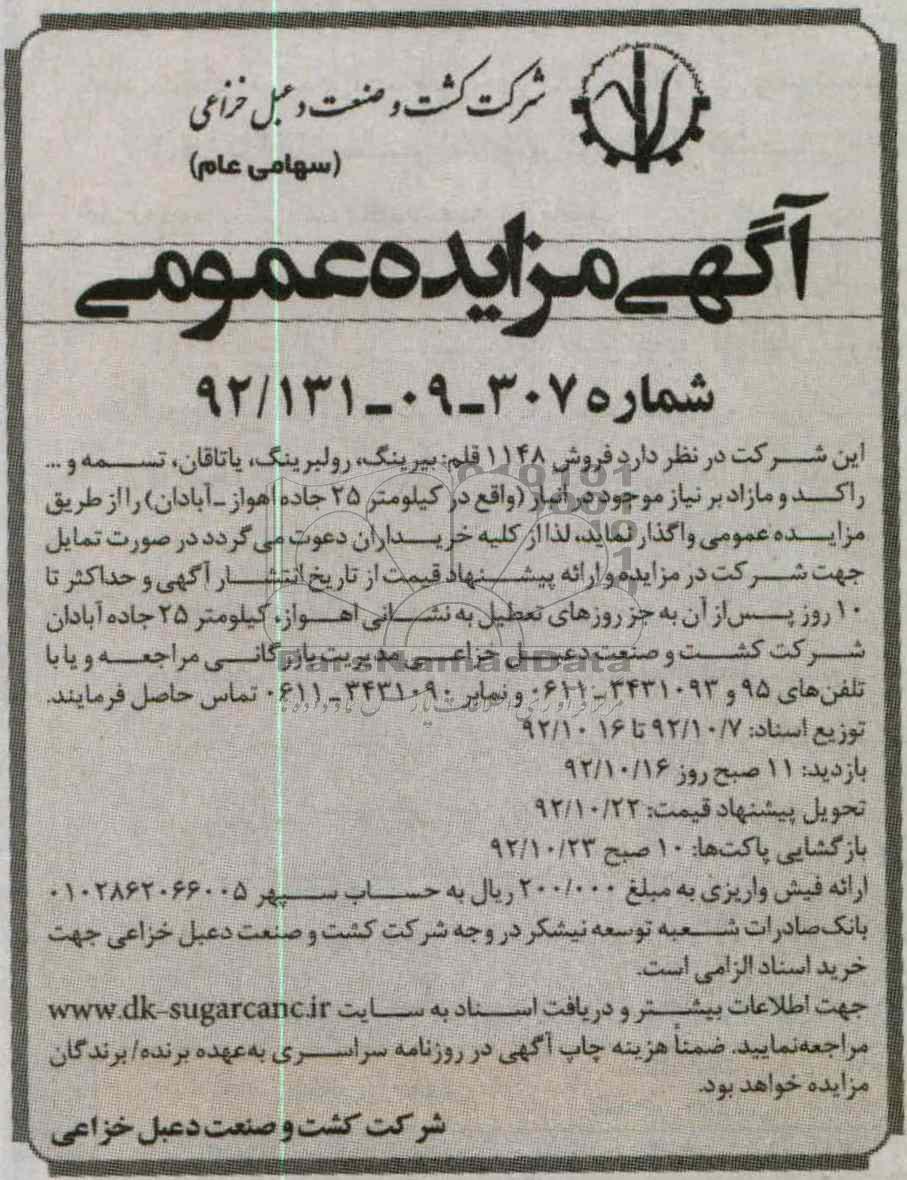 شرکت کشت و صنعت دعبل خزاعی
(سهامی عام)
آگهی مزایده عمومی
شماره ۳۰۷-۰۹-۹۲/۱۳۱
این شرکت در نظر دارد فروش ۱۱۴۸ قلم: بیرینگ، رولبرینگ، یاتاقان، تسمه و ...
راکد و مازاد بر نیاز موجود در انبار (واقع در کیلومتر ۲۵ جاده اهواز-آبادان) را از طریق
مزایده عمومی واگذار نماید، لذا از کلیه خریداران دعوت می گردد در صورت تمایل
جهت شرکت در مزایده و ارائه پیشنهاد قیمت از تاریخ انتشار آگهی و حداکثر تا
۱۰ روز پس از آن به جز روزهای تعطیل به نشانی اهواز، کیلومتر ۲۵ جاده آبادان
شرکت کشت و صنعت دعبل خزاعی مدیریت بازرگانی مراجعه و یا با
تلفن‌های ۹۵ و ۳۴۳۱۰۹۳-۰۶۱۱ و نمابر ۳۴۳۱۰۹۰-۰۶۱۱ تماس حاصل فرمایند.
توزیع اسناد: ۹۲/۱۰/۷ تا ۹۲/۱۰/۱۶
بازدید: ۱۱ صبح روز ۹۲/۱۰/۱۶
تحویل پیشنهاد قیمت: ۹۲/۱۰/۲۲
بازگشایی پاکت‌ها: ۱۰ صبح ۹۲/۱۰/۲۳
ارائه فیش واریزی به مبلغ ۲۰۰/۰۰۰ ریال به حساب سپهر ۰۱۰۲۸۶۲۰۶۶۰۰۵
بانک صادرات شعبه توسعه نیشکر در وجه شرکت کشت و صنعت دعبل خزاعی جهت
خرید اسناد الزامی است.
جهت اطلاعات بیشتر و دریافت اسناد به سایت www.dk-sugarcanc.ir
مراجعه نمایید. ضمناً هزینه چاپ آگهی در روزنامه سراسری به عهده برنده/برندگان
مزایده خواهد بود.
شرکت کشت و صنعت دعبل خزاعی
ParsNamadData